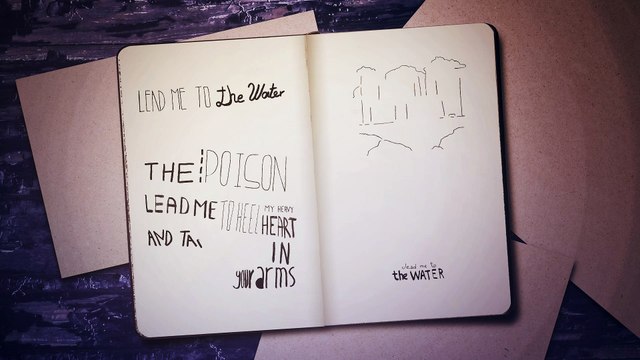 LEAD ME TO the Water
THE POISON
LEAD ME TO HEEL MY HEAVY HEART
AND TA IN
your arms
lead me to
the WATER